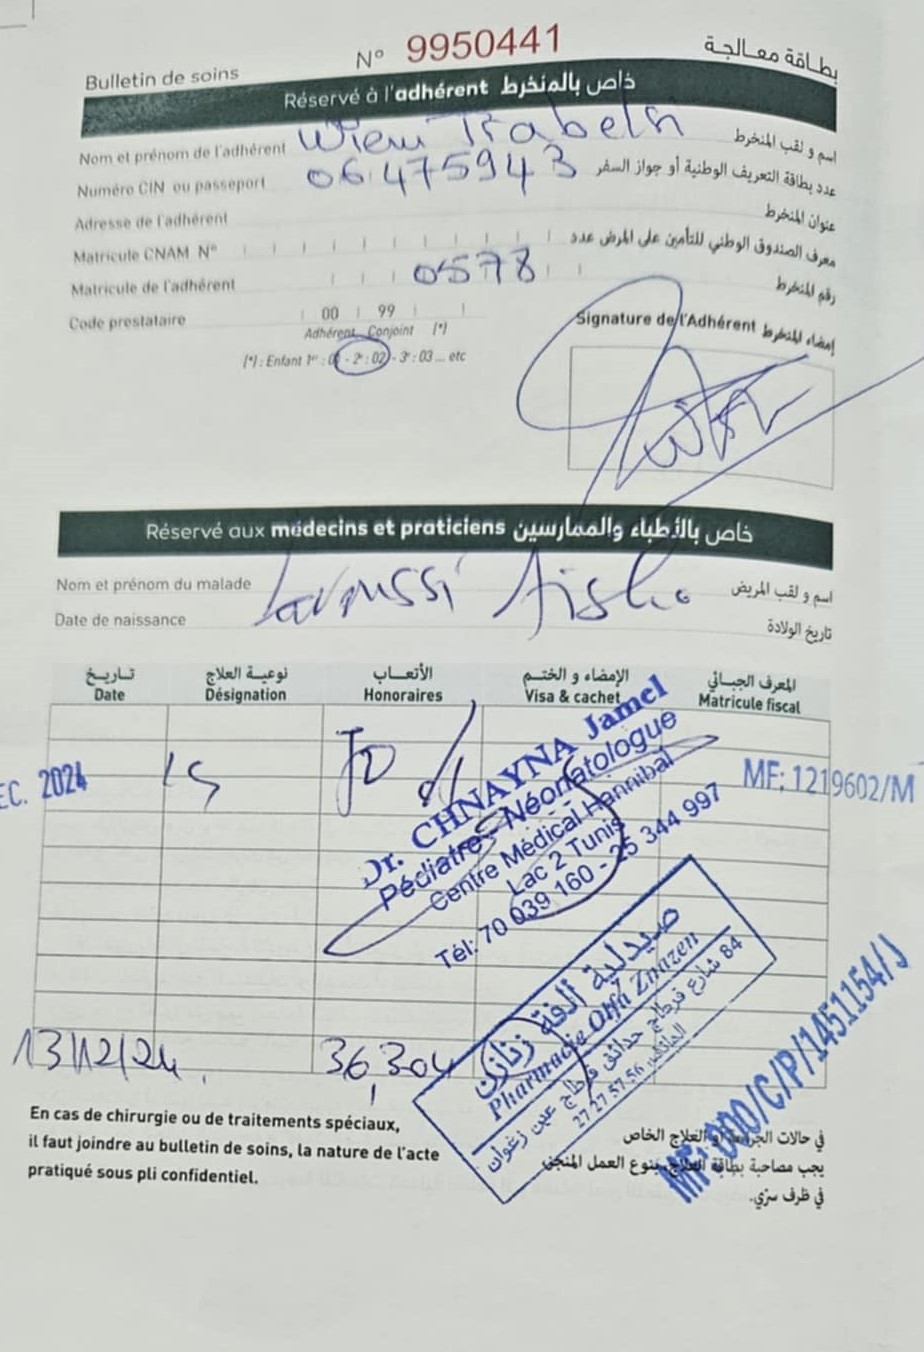 Bulletin de soins N° 9950441 بطاقة معالجة
Réservé à l'adhérent خاص بالمنخرط
Nom et prénom de l'adhérent Wiem Trabelsi اسم و لقب المنخرط
Numéro CIN ou passeport 06475943 عدد بطاقة التعريف الوطنية أو جواز السفر
Adresse de l'adhérent عنوان المنخرط
Matricule CNAM N° معرف الصندوق الوطني للتأمين على المرض عدد
Matricule de l'adhérent 0578 رقم المنخرط
Code prestataire 00 99
Adhérent Conjoint (*)
(*) : Enfant 1er : 01 - 2e : 02 - 3e : 03 ... etc
Signature de l'Adhérent إمضاء المنخرط
Réservé aux médecins et praticiens خاص بالأطباء والممارسين
Nom et prénom du malade Aisha اسم و لقب المريض
Date de naissance تاريخ الولادة
تاريخ نوعية العلاج الأتعاب الإمضاء و الختم المعرف الجبائي
Date Désignation Honoraires Visa & cachet Matricule fiscal
EC. 2024
MF: 1219602/M
Dr. CHNAYNA Jamel
Pédiatre - Néonatologue
Centre Médical Hannibal
Lac 2 Tunis
Tél: 70 039 160 - 25 344 997
13/12/24 36,304
صيدلية الفة زنازن
Pharmacie Olfa Znazen
84 شارع قرطاج حدائق قرطاج عين زغوان
27 27 57 56
MF: 000/C/P/1451154/J
En cas de chirurgie ou de traitements spéciaux,
il faut joindre au bulletin de soins, la nature de l'acte
pratiqué sous pli confidentiel.
في حالات الجراحة أو العلاج الخاص
يجب مصاحبة بطاقة العلاج بنوع العمل المنجز
في ظرف سرّي.